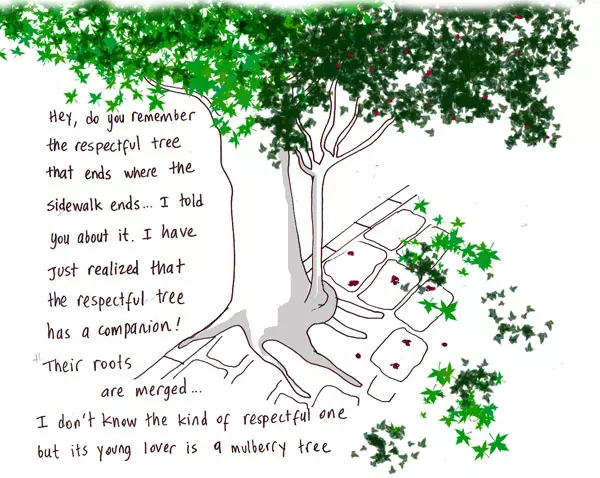 Hey, do you remember
the respectful tree
that ends where the
sidewalk ends... I told
you about it. I have
just realized that
the respectful tree
has a companion!
Their roots
are merged...
I don't know the kind of respectful one
but its young lover is a mulberry tree